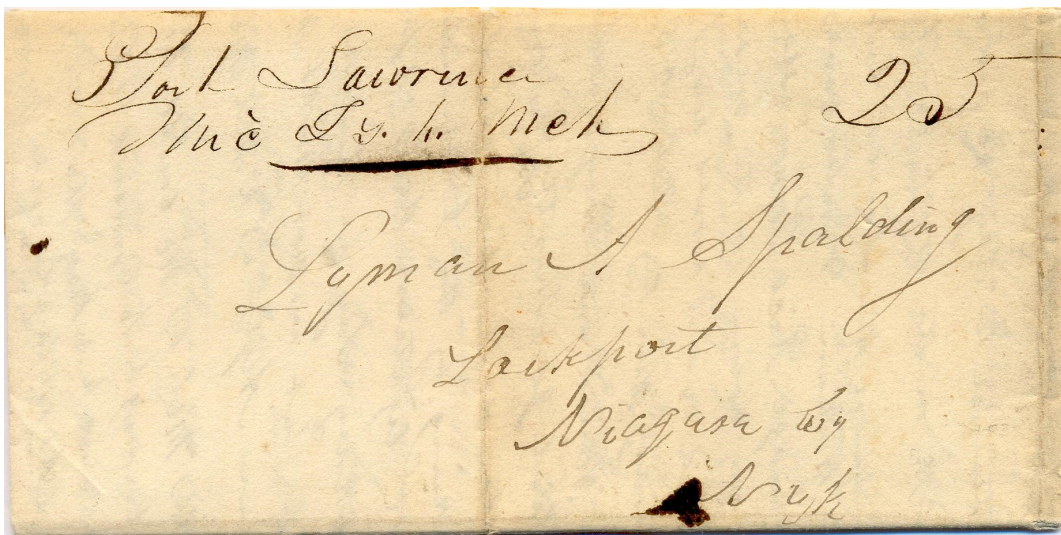 Port Lawrence 25
Mic Ty. h. Mch
Lyman A Spalding
Lockport
Niagara Cy
N yk